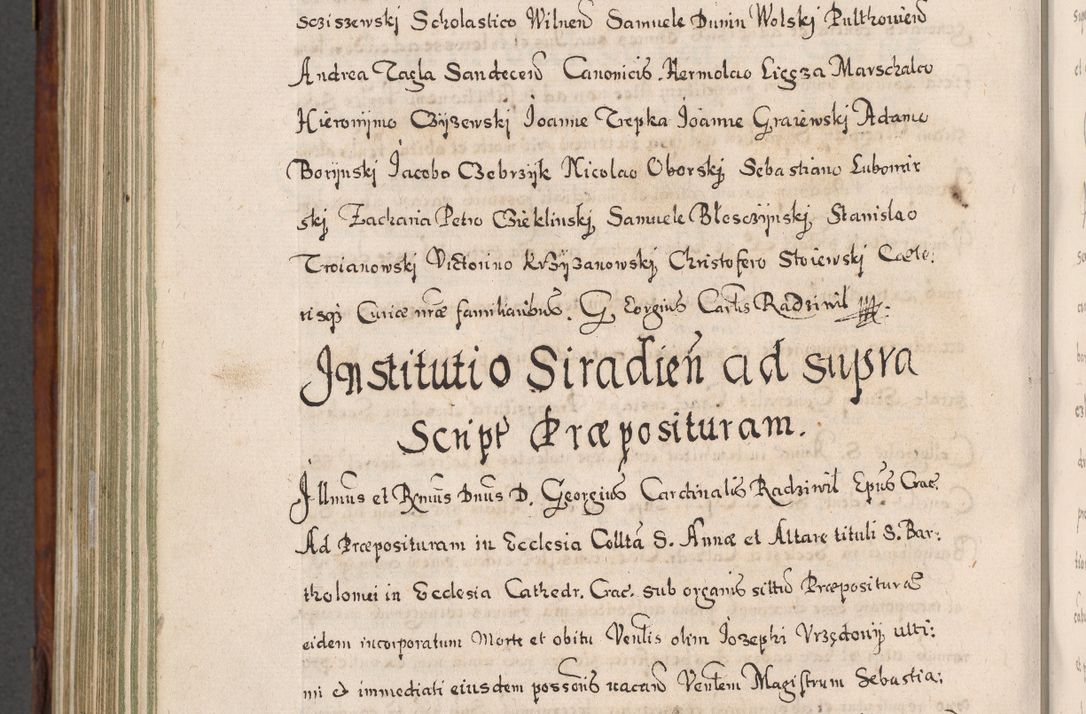 scziszewskj Scholastico Wilneñ Samuele Dunin Wolskj Pulthovieñ
Andrea Tagla Sandeceñ Canonicis. Hermolao Ligęza Marschalco
Hieronymo Czyżewskj Joanne Trepka Joanne Graiewskj Adamo
Borÿnskj Jacobo Czebrzÿk Nicolao Oborskj, Sebastiano Lubomir
skj Zacharia Petro Cieklinskj, Samuele Błesczÿnskj, Stanislao
Troianowskj Victorino Krzÿzanowskj, Christofero Stoiewskj Caete:
risqȝ Curiæ nræ familiaribus. G. Eorgius Carlis Radziwil
Institutio Siradień ad supra
Script Præposituram.
Illmus et Rmus Dnus D. Georgius Cardinalis Radziwil Epus Crac:
Ad Præposituram in Ecclesia Colltã S. Annæ et Altare tituli S. Bar:
tholomei in Ecclesia Cathedr. Crac. sub organis situ Præposituræ
eidem incorporatum Morte et obitu Venlis olim Jozephi Vrzędowij ulti:
mi & immediati eiusdem possoris vacañ Venlem Magistrum Sebastia: